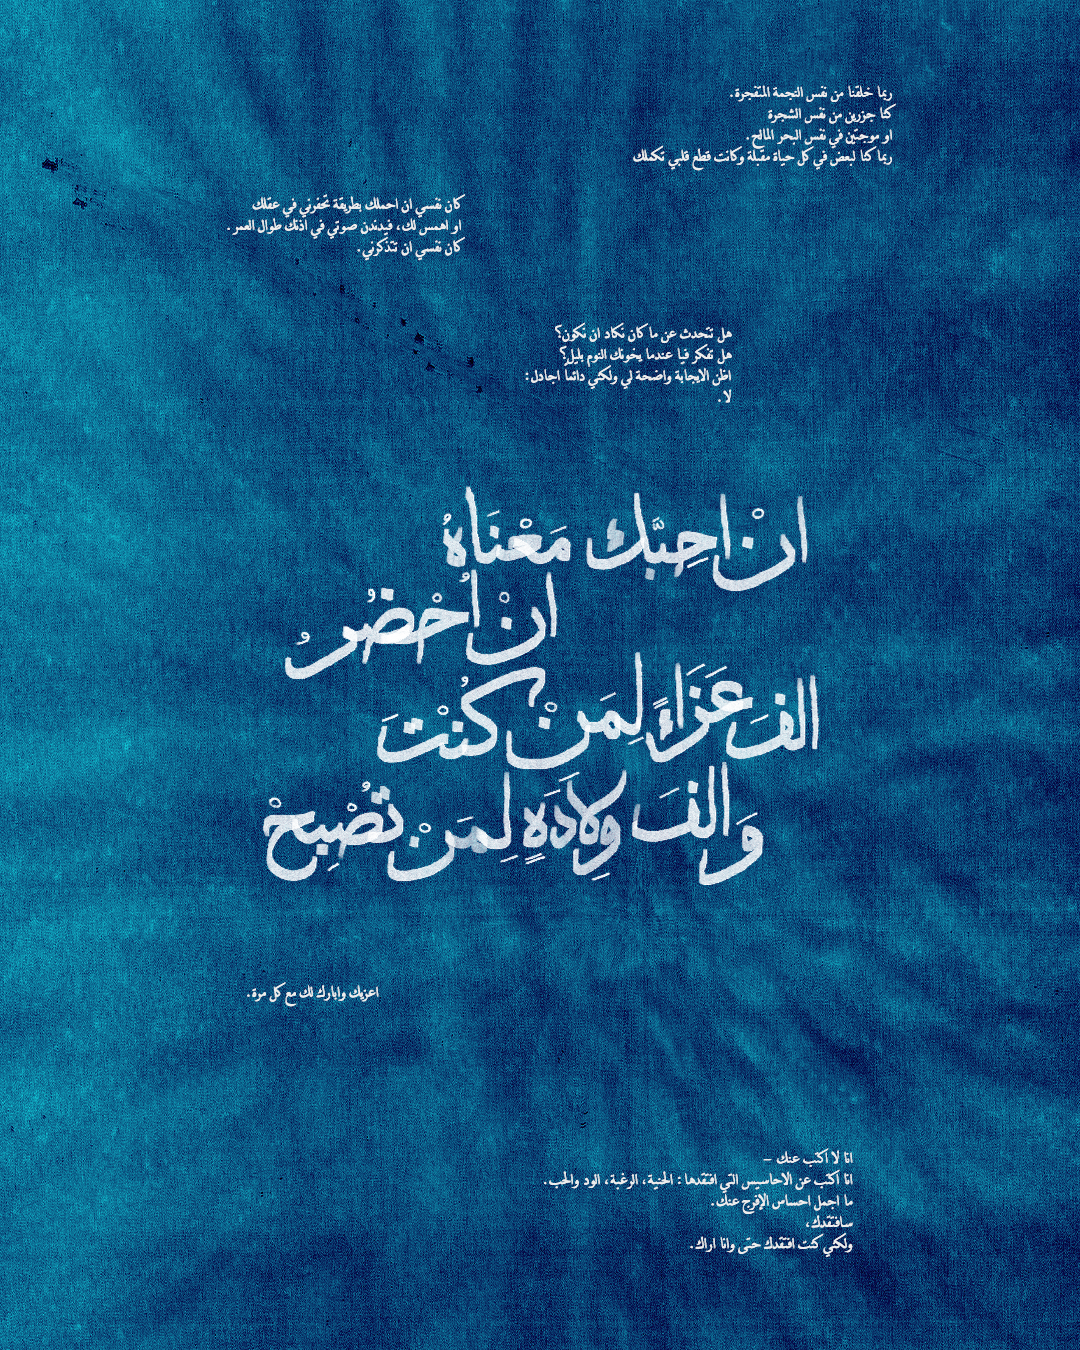 ربما خلقنا من نفس النجمة المتفجرة.
كنا جزرين من نفس الشجرة
او موجتين في نفس البحر المالح.
ربما كنا لبعض في كل حياة مقبلة وكانت قطع قلبي تكملك
كان نفسي ان احملك بطريقة تحفرني في عقلك
او اهمس لك، فيدندن صوتي في اذنك طوال العمر.
كان نفسي ان تتذكرني.
هل تتحدث عن ما كان نكاد ان نكون؟
هل تفكر فيا عندما يخونك النوم بليل؟
اظن الايجابة واضحة لي ولكني دائماً اجادل:
لا.
انْ احِبَّك مَعْنَاهُ
انْ اُحْضُرُ
الفَ عَزَاءً لِمَنْ كُنْتَ
وَالفَ وِلادَةٍ لِمَنْ تُصْبِحْ
اعزيك وابارك لك مع كل مرة.
انا لا اكتب عنك –
انا اكتب عن الاحاسيس التي افتقدها: الحنية، الرغبة، الود والحب.
ما اجمل احساس الإفرج عنك.
سافتقدك،
ولكني كنت افتقدك حتى وانا اراك.